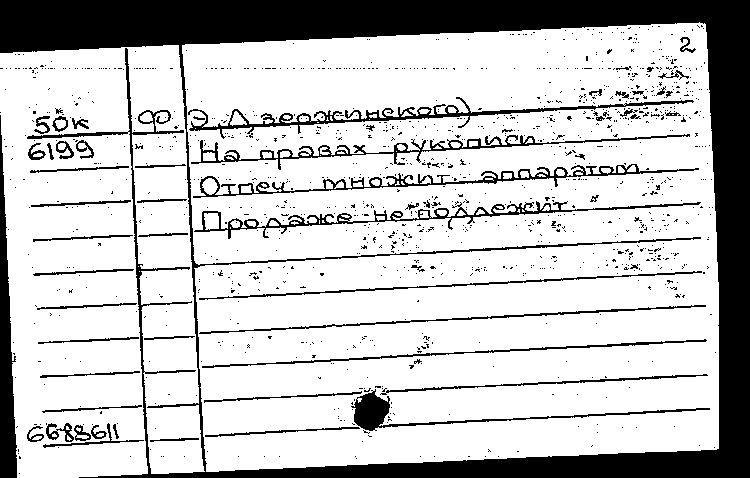 2
50к Ф. Э. Дзержинского).
6199 На правах рукописи.
Отпеч. множит. аппаратом.
Продаже не подлежит.
6683611